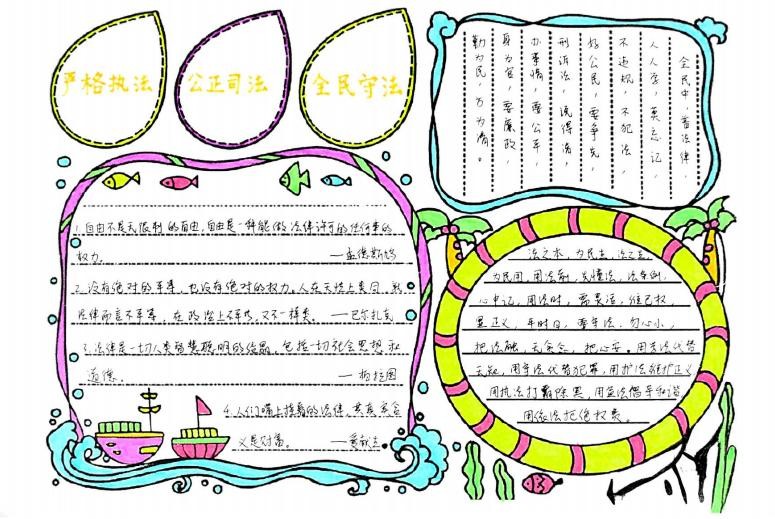 严格执法
公正司法
全民守法
全民中，普法律
人人学，莫忘记，
不违规，不犯法，
好公民，要争先，
刑诉法，说得清
办事情，要公平
身为官，要廉政，
勤为民，方为清。
1.自由不是无限制的自由，自由是一种能做法律许可的任何事的
权力。——孟德斯鸠
2.没有绝对的平等，也没有绝对的权力。人在天性上类同，就
法律而言不平等，在政治上不平等，又不一样类。——巴尔扎克
3.法律是一切人类智慧聪明的结晶，包括一切社会思想和
道德。——柏拉图
4.人们嘴上挂着的法律，其真实含
义是财富。——爱献生
法之本，为民主，法之
为民用，用法前，先懂法，法条例，
心中记，用法时，需灵活，维己权，
显正义，平时日，要守法，勿心小，
把法融，无贪念，把心安。用方法代替
无知，用守法代替犯罪，用护法维护正义
用执法打霸除黑，用益法倡导和谐
用依法拒绝权